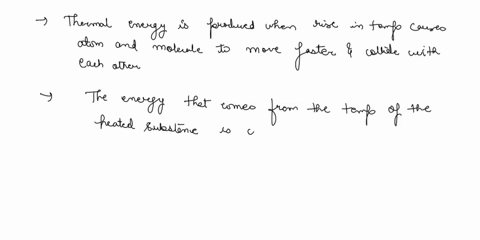 → Thermal energy is produced when rise in temp causes
atom and molecule to move faster & collide with
each other
→ The energy that comes from the temp of the
heated substance is c